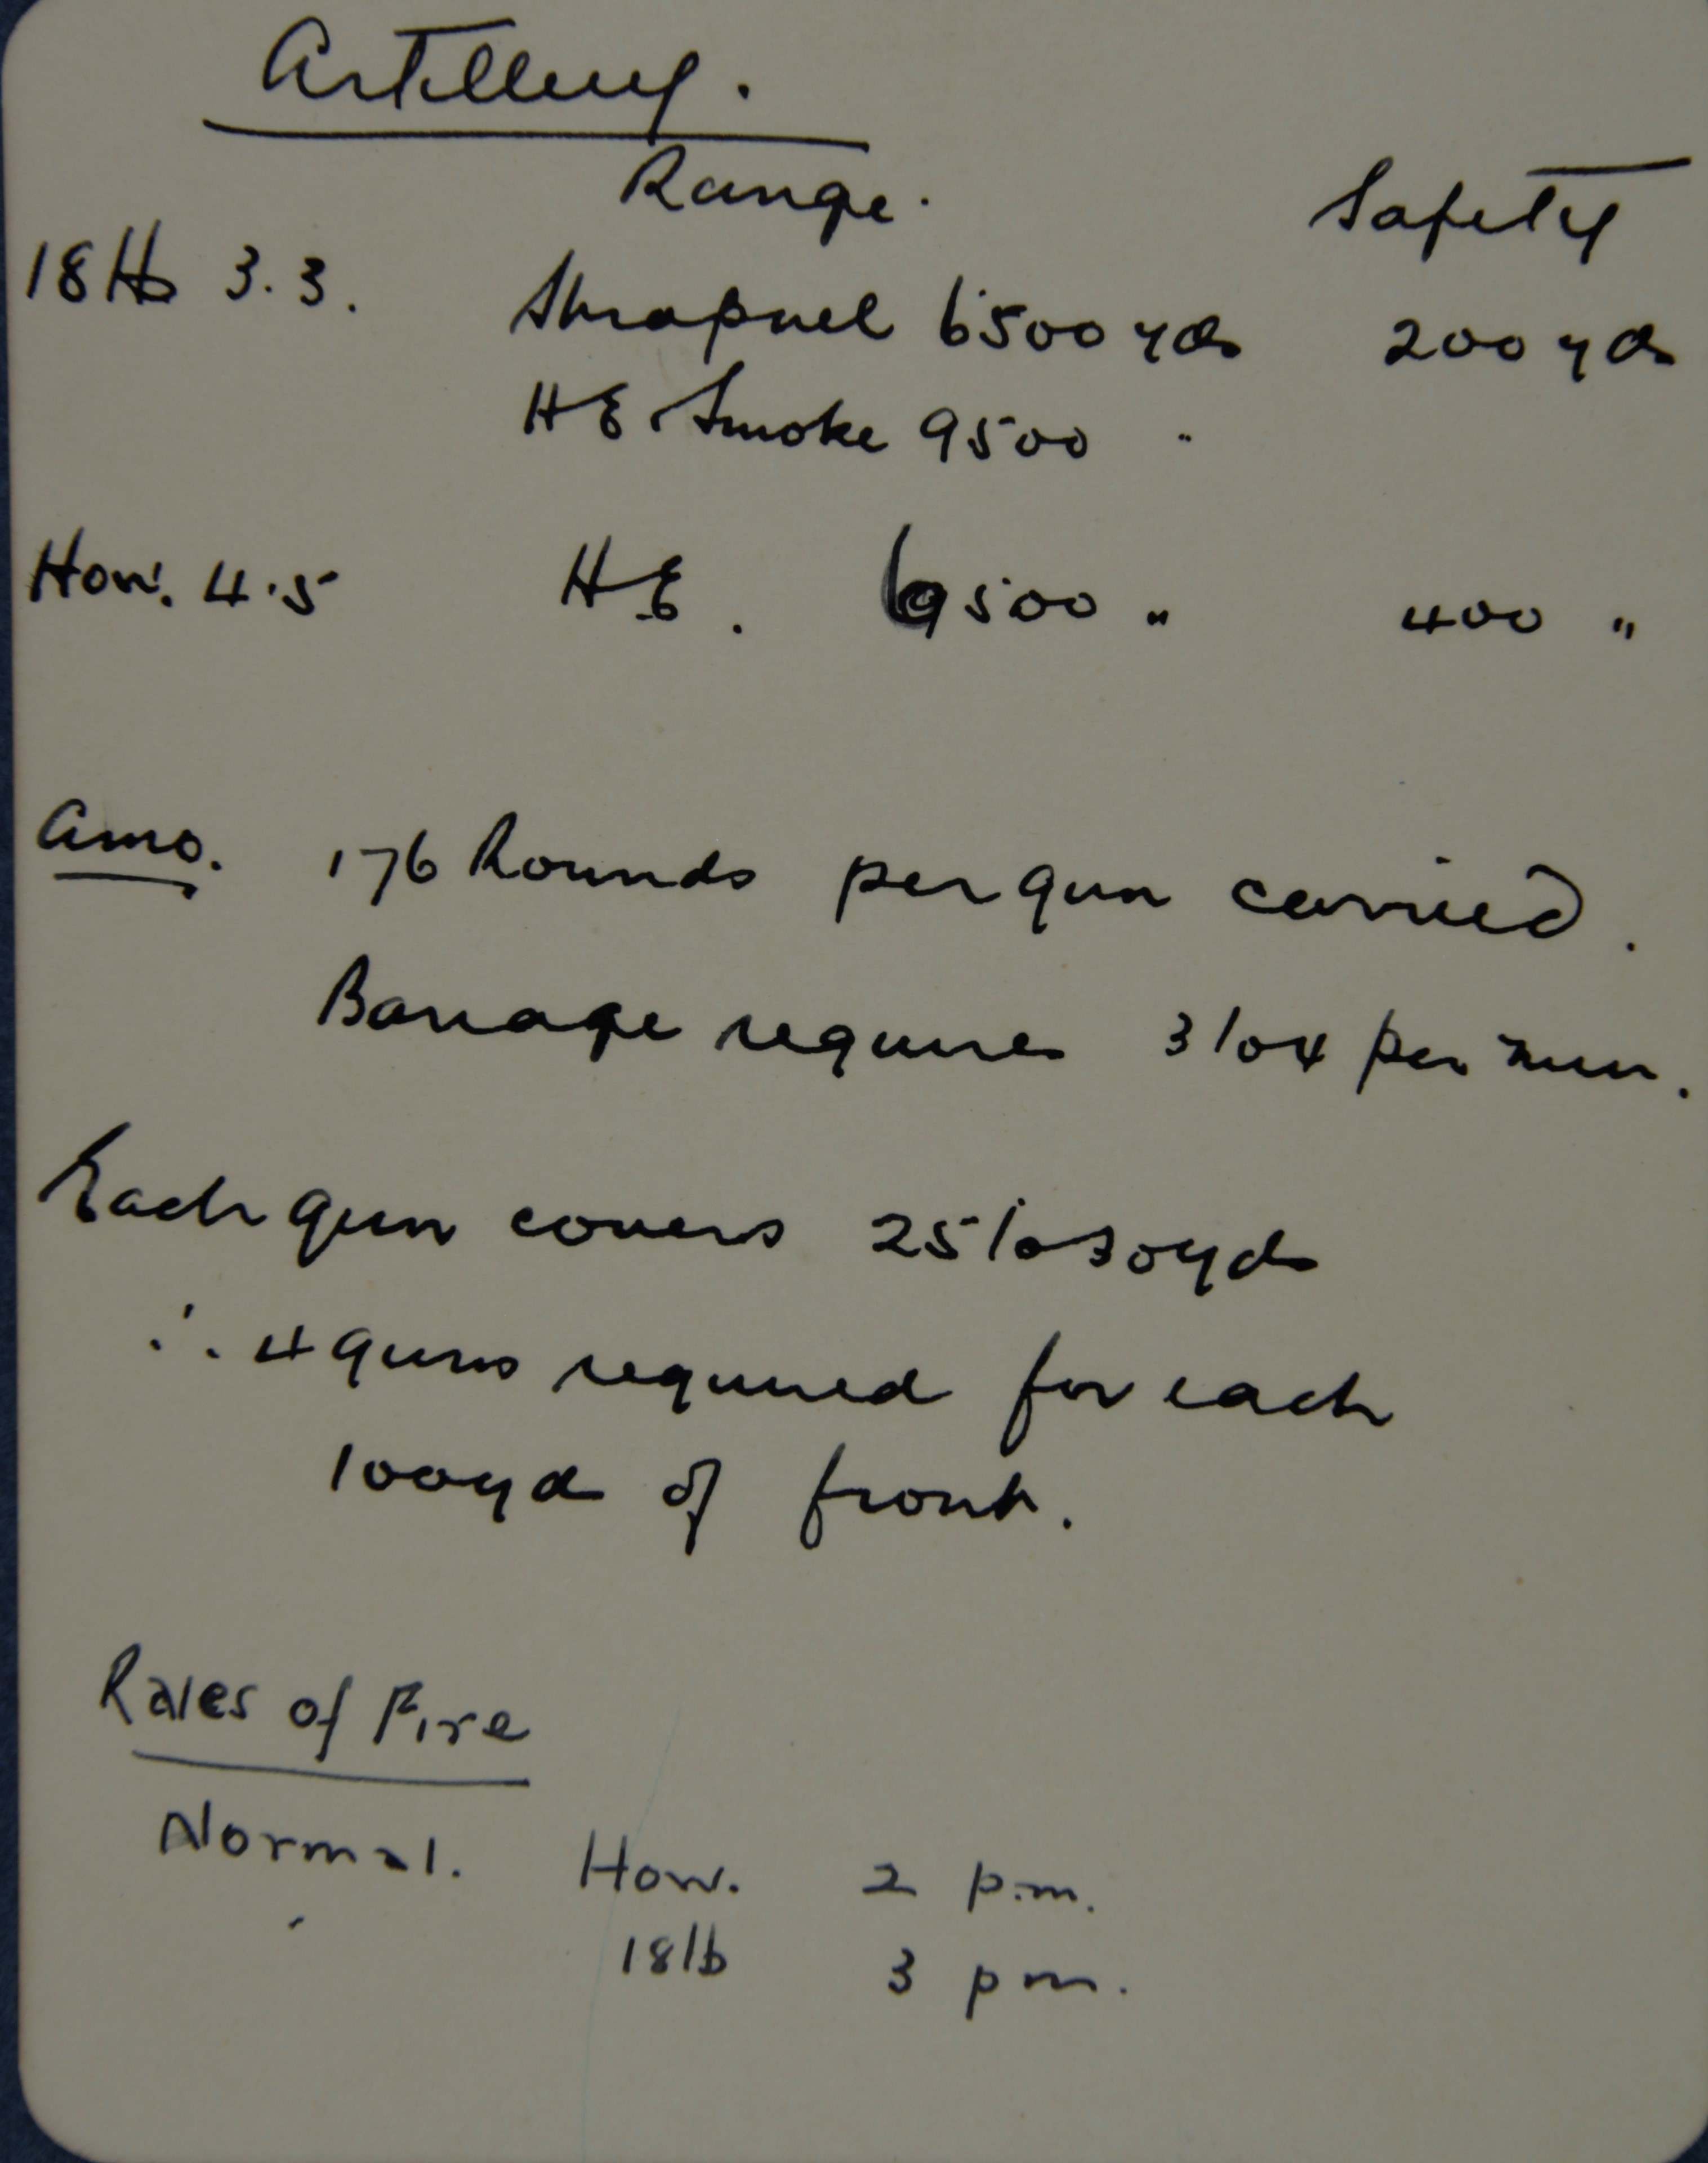 Artillery.
Range. Safety
18lb 3.3. Shrapnel 6500 yds 200 yds
HE Smoke 9500 "
How. 4.5 HE. 6500 " 400 "
Amo. 176 Rounds per gun carried.
Barrage requires 3 to 4 per min.
Each gun covers 25 to 30 yds
∴ 4 guns required for each
100 yds of front.
Rates of Fire
Normal. How. 2 p.m.
18lb 3 p m.